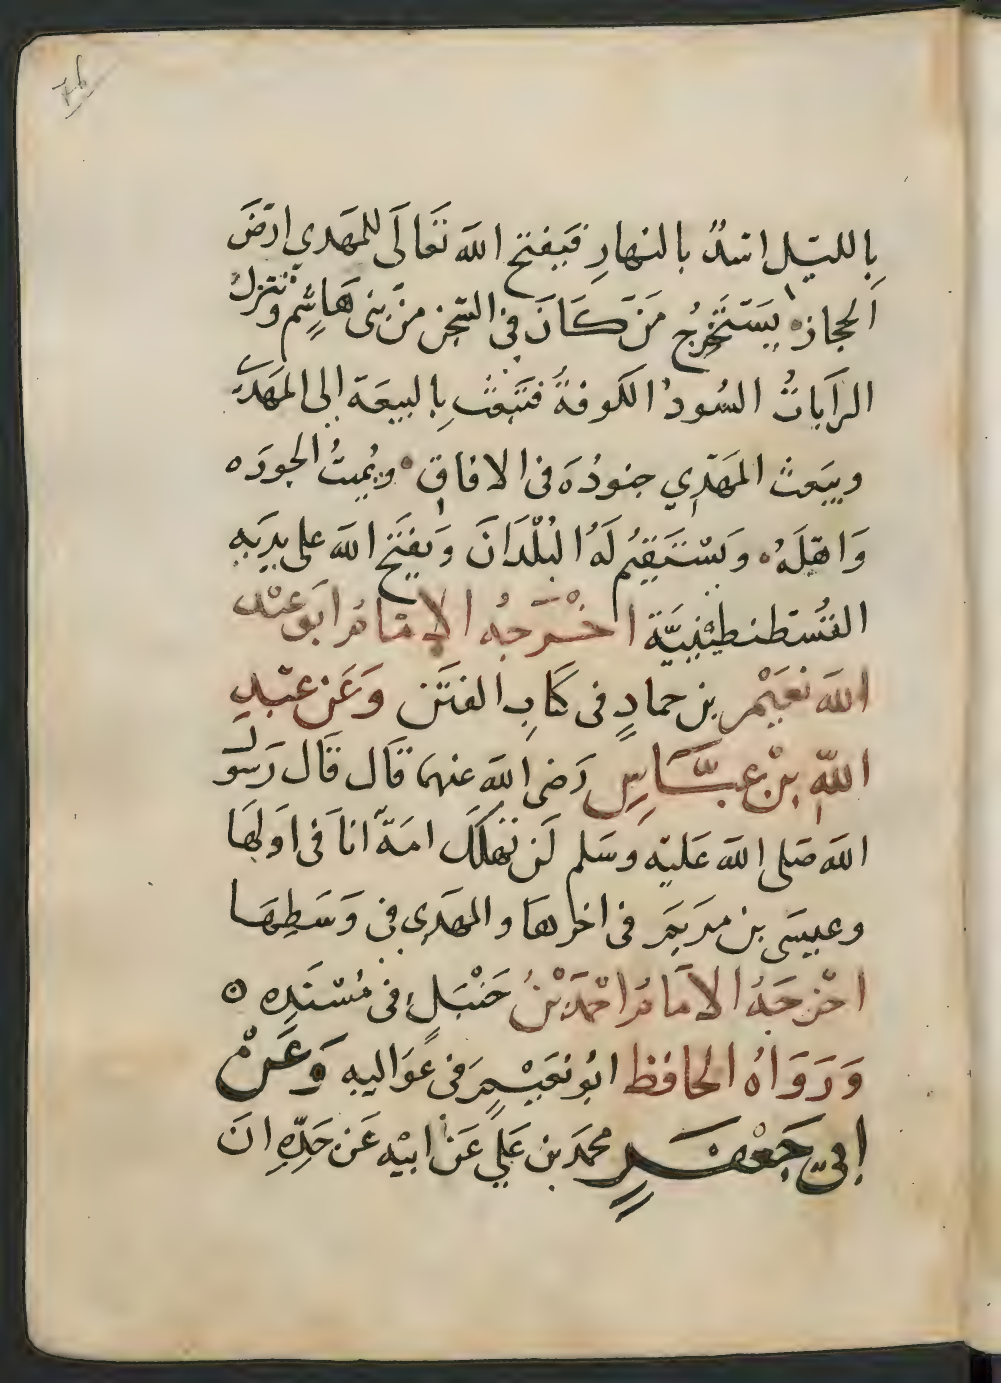 بالليل اشدّ بالنهارِ فيفتح الله تعالَى للمهَدى ارضَ
الحجازه يَسَتَخرِجُ مَن كَانَ فى السّجن من بنى هَاشِم وتنزلُ
الرَاياتُ السُودُ الكوفةَ فتَبَعث بِالبيعَة الى المَهَدىّ
ويبَعث المَهَدّي جنودُهَ فى الافاق ه ويُميتُ الجورَ ه
وَاهلَهُ ه وَيسْتَقيُم لَهُ البُلْدَانَ وَيَفتَح الله على يدَيِه
القُسْطنطينيَّة اخْرَجهُ الإمَامُ ابَو عبْد
الله نعَيْم بن حمادٍ فى كتابِ الفتَن وَعَن عبْدِ
اللّهِ بنْ عبَّاسٍ رَضى الله عنهما قَال قَال رَسوُل
الله صَلى الله عَليْه وسَلم لَن تهلكَ امَةٌ انا فى اوَلهَا
وعيسَى بن مريَم فى اخرهَا والمهَدِى فى وَسَطِهَا
اخْرَجَهُ الامَامُ احْمَدَ بْنُ حَنْبَلٍ فى مُسْنَدِه ه
وَرَوَاهُ الحَافظ ابُو نعَيْمٍ فى عوَاليه وَعَنْ
ابى جَعْفَرٍ محمَد بن عَلي عَن ابيْه عَن جَدِّهِ انَ